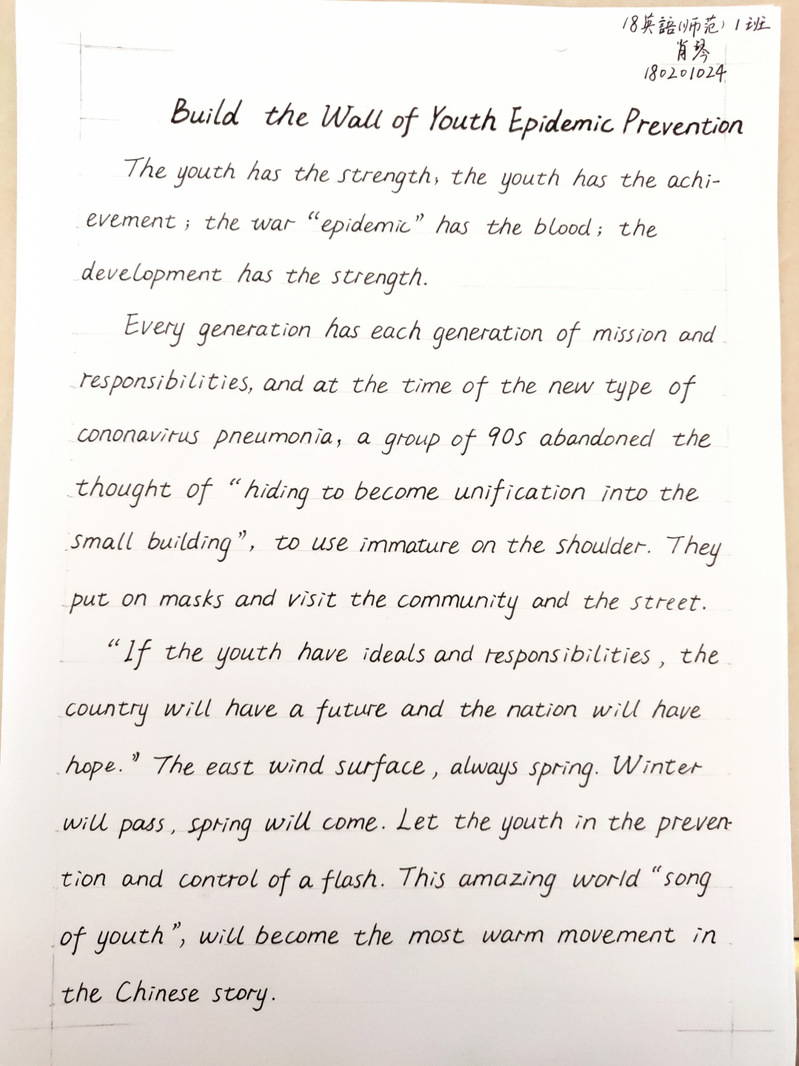 18英語(师范)1班
肖琴
180201024
Build the Wall of Youth Epidemic Prevention
The youth has the strength, the youth has the achi-
evement; the war "epidemic" has the blood; the
development has the strength.
Every generation has each generation of mission and
responsibilities, and at the time of the new type of
cononavirus pneumonia, a group of 90s abandoned the
thought of "hiding to become unification into the
small building", to use immature on the shoulder. They
put on masks and visit the community and the street.
"If the youth have ideals and responsibilities, the
country will have a future and the nation will have
hope." The east wind surface, always spring. Winter
will pass, spring will come. Let the youth in the preven-
tion and control of a flash. This amazing world "song
of youth", will become the most warm movement in
the Chinese story.